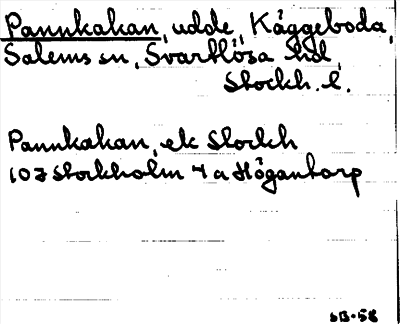 Pannkakan, udde, Kaggeboda,
Salems sn, Svartlösa hd,
Stockh. l.
Pannkakan, ek Stockh
107 Stockholm 4 a Högantorp
SB-58